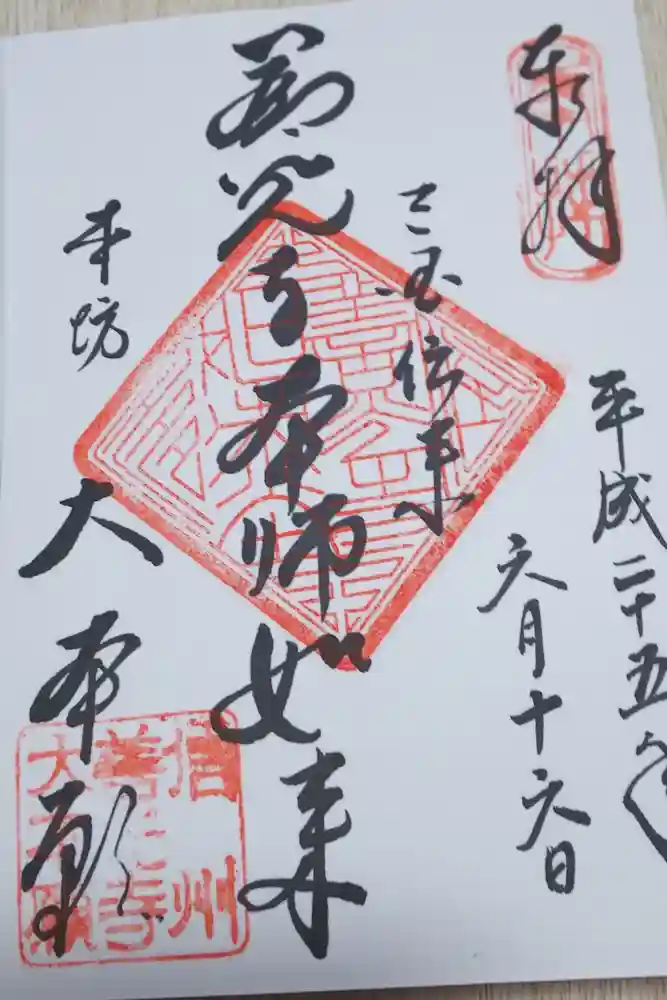 奉拝
平成二十五年
六月十六日
三国伝来
善光寺本師如来
本坊
大本願
信州
善光寺
大本願